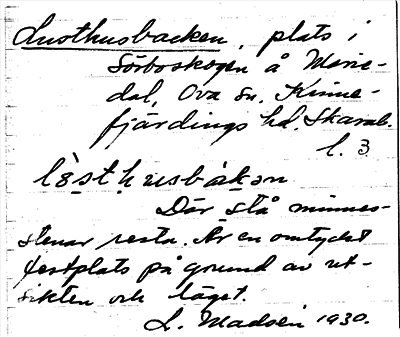 Lusthusbacken, plats i
Sörboskogen å Marie-
dal, Ova sn. Kinne-
fjärdings hd. Skarab.
l. 3
lòsthusbàkən
Där stå minnes-
stenar resta. Är en omtyckt
festplats på grund av ut-
sikten och läget.
L. Madsén 1930.